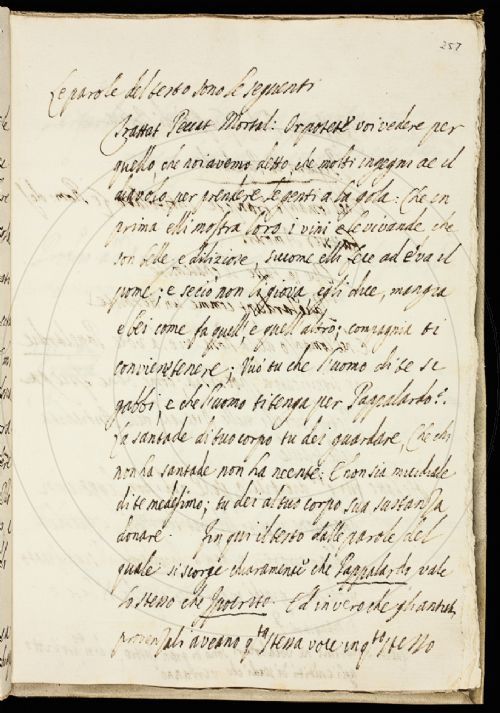 257
Le parole del testo sono le seguenti
Trattat Peccat Mortal: Or potete voi vedere per
quello che noi avemo detto, che molti ingegni ae il
diavolo per prendere le genti a la gola: Che en
prima elli mostra loro i vini e le vivande che
son belle e diliziose, siccome elli fece ad Eva il
pome; e se ciò non la gioia, egli dice, mangia
e bei come fa quell' e quell' altro; compagnia ti
convien tenere; Vuo' tu che l'uomo di te se
gabbi, e che l'uomo ti tenga per Pappalardo?
La santade di tuo corpo tu dei guardare, Che chi
non ha santade non ha neente: E non sia micidiale
di te medesimo; tu dei al tuo corpo sua sustanza
donare. Fin qui il testo dalle parole del
quale si scorge chiaramente che Pappalardo vale
lo stesso che Ipocrito. Ed in vero che gli antichi
provenzali aveano q.ta stessa voce in q.to stesso